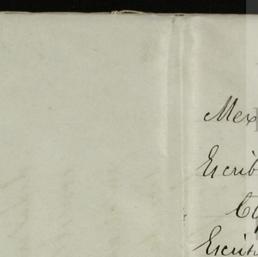 Mex
Escrib
Escrit